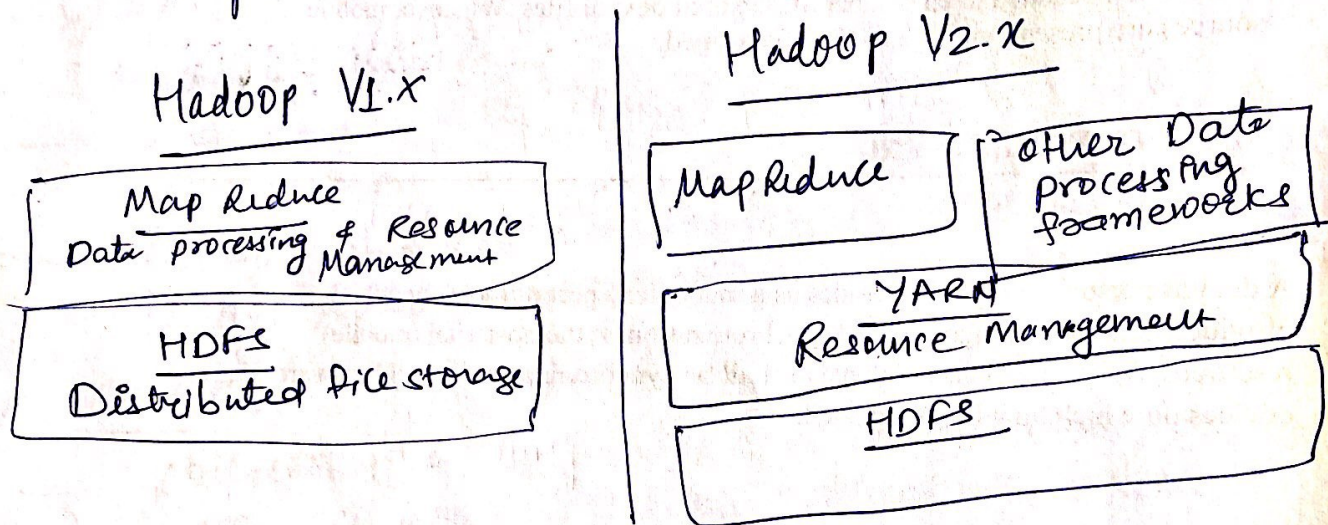 Hadoop V1.X
Map Reduce
Data processing & Resource
Management
HDFS
Distributed file storage
Hadoop V2.x
MapReduce
other Data
processing
frameworks
YARN
Resource Management
HDFS